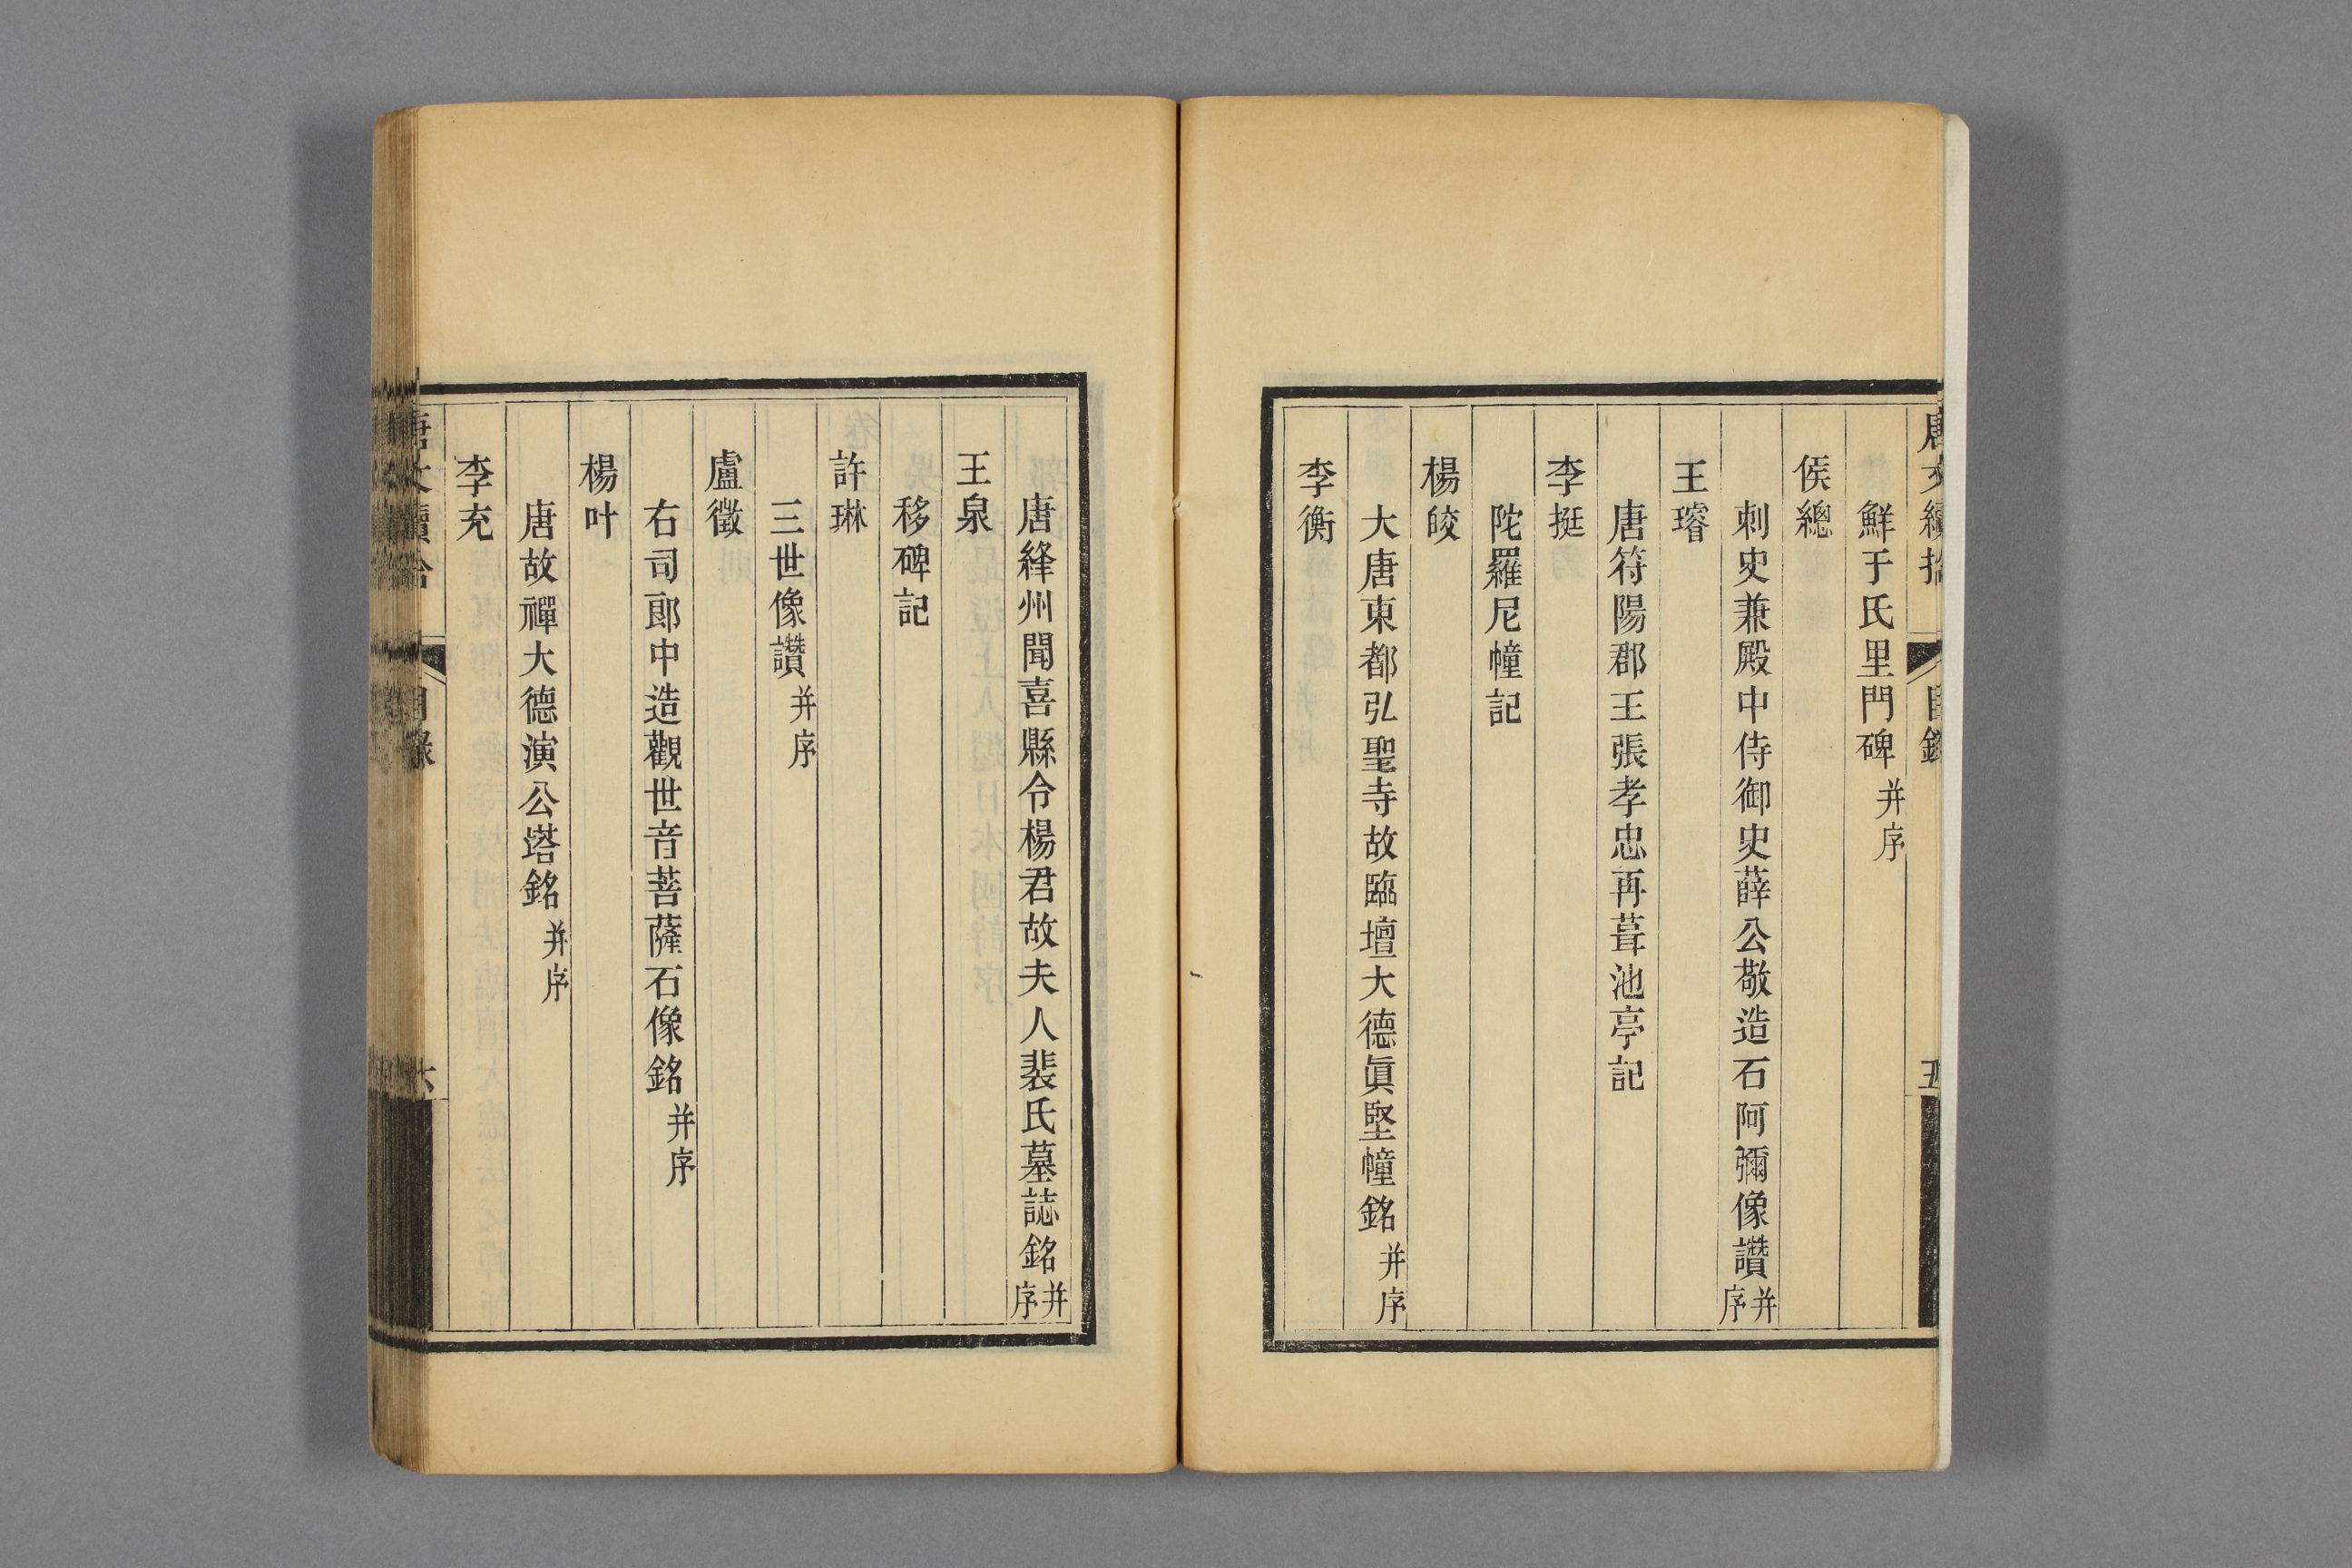 唐文續拾
目錄
五
鮮于氏里門碑并序
侯總
刺史兼殿中侍御史薛公敬造石阿彌像讚并序
王璿
唐符陽郡王張孝忠再葺池亭記
李挺
陀羅尼幢記
楊皎
大唐東都弘聖寺故臨壇大德眞堅幢銘并序
李衡
唐絳州聞喜縣令楊君故夫人裴氏墓誌銘并序
王泉
移碑記
許琳
三世像讚并序
盧徵
右司郎中造觀世音菩薩石像銘并序
楊叶
唐故禪大德演公塔銘并序
李充
唐文續拾
目錄
六